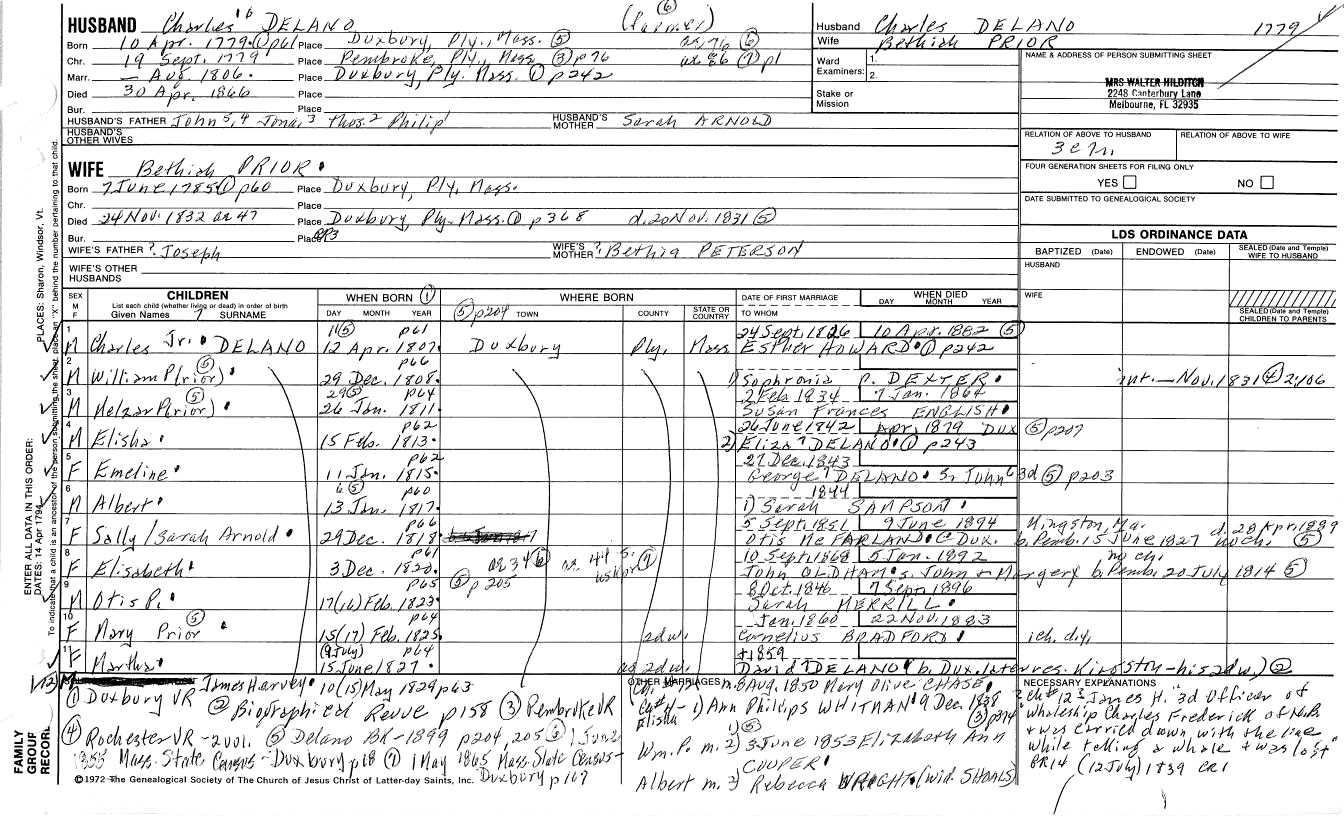 HUSBAND Charles⁶ DELANO (Farmer) ⑥
Born 10 Apr. 1779 ① p61 Place Duxbury, Ply., Mass. ⑤ ae 76 ⑥
Chr. 19 Sept. 1779 Place Pembroke, Ply., Mass ③ p76 ae 86 ⑦ p1
Marr. — Aug. 1806. Place Duxbury, Ply. Mass. ① p242
Died 30 Apr. 1866 Place
Bur. Place
HUSBAND'S FATHER John 5,4 Jona.3 Thos.2 Philip1 HUSBAND'S MOTHER Sarah ARNOLD
HUSBAND'S OTHER WIVES
Husband Charles DELANO 1779
Wife Bethiah PRIOR
Ward Examiners: 1. 2.
Stake or Mission
NAME & ADDRESS OF PERSON SUBMITTING SHEET
MRS WALTER HILDITCH
2248 Canterbury Lane
Melbourne, FL 32935
RELATION OF ABOVE TO HUSBAND RELATION OF ABOVE TO WIFE
FOUR GENERATION SHEETS FOR FILING ONLY
YES NO
DATE SUBMITTED TO GENEALOGICAL SOCIETY
WIFE Bethiah PRIOR
Born 7 June 1785 ① p60 Place Duxbury, Ply, Mass.
Chr. Place
Died 24 Nov. 1832 ae 47 Place Duxbury, Ply. Mass. ① p368 d. 20 Nov. 1831 ⑤
Bur. Place
WIFE'S FATHER ? Joseph WIFE'S MOTHER ? Bethia PETERSON
WIFE'S OTHER HUSBANDS
LDS ORDINANCE DATA
BAPTIZED (Date) ENDOWED (Date) SEALED (Date and Temple) WIFE TO HUSBAND
HUSBAND
WIFE
SEALED (Date and Temple) CHILDREN TO PARENTS
SEX M F CHILDREN WHEN BORN ① WHERE BORN DATE OF FIRST MARRIAGE WHEN DIED
List each child (whether living or dead) in order of birth
Given Names SURNAME DAY MONTH YEAR ⑤ p204 TOWN COUNTY STATE OR COUNTRY TO WHOM DAY MONTH YEAR
11 ⑤ p61 24 Sept. 1826 10 Apr. 1882 ⑤
1 M Charles Jr. DELANO 12 Apr. 1807 Duxbury Ply. Mass ESTHER HOWARD ① p242
p66
2 M William P(rior) ⑤ 29 Dec. 1808 1) Sophronia P. DEXTER int. — Nov. 1831 ④ 2:106
29 ⑤ p64 2 Feb 1834 7 Jan. 1864
3 M Melzar P(rior) ⑤ 26 Jan. 1811 SUSAN Frances ENGLISH
p62 26 June 1842 Apr. 1879 DUX ⑤ p207
4 M Elisha 15 Feb. 1813 2) Eliza⁷ DELANO ① p243
p62 27 Dec. 1843
5 F Emeline 11 Jan. 1815 George⁷ DELANO s. John⁶ 3d ⑤ p203
6 ⑤ p60 1844
6 M Albert 13 Jan. 1817 1) Sarah SAMPSON
p66 5 Sept. 1851 9 June 1894 Kingston, Ma. d. 28 Apr. 1889
7 F Sally/Sarah Arnold 29 Dec. 1818 Otis McFARLAND @ Dux. b. Pemb. 15 June 1827 no ch. ⑤
p61 10 Sept. 1868 5 Jan. 1892 no ch.
8 F Elisabeth 3 Dec. 1820 ae 34 ⑥ ae 44 S. ⑦ John OLDHAM s. John + Margery b. Pemb. 20 July 1814 ⑤
p65 ⑤ p205 8 Oct. 1846 7 Sept. 1896
9 M Otis P. 17(16) Feb. 1823 Sarah MERRILL
p64 Jan. 1860 22 Nov. 1883
10 F Mary Prior ⑤ 15(17) Feb. 1825 2d w. Cornelius BRADFORD 1 ch. d.y.
(9 July) p64 +1859
11 F Martha 15 June 1827 as 2d w. David⁷ DELANO (b. Dux. inter res. Kingston - his 2d w.) ②
12 M James Harvey 10 (15) May 1829 p63
OTHER MARRIAGES m. 8 Aug. 1850 Mary Olive CHASE
Ch #4 - Elisha 1) Ann Philips WHITMAN 9 Dec. 1838 ③ p374
Wm. P. m. 2) ⑤ 3 June 1853 Elizabeth Ann COOPER
Albert m. 2) Rebecca WRIGHT (wid. SHOALS)
NECESSARY EXPLANATIONS
ch #12 "James H. 3d Officer of Whaleship Charles Frederick of N.B. + was carried down with the line while telling a whale + was lost" PR14 (12 July) 1839 CR1
① Duxbury VR ② Biographical Revue p158 ③ Pembroke VR
④ Rochester VR - 2 vol. ⑤ Delano BK - 1899 p204, 205 ⑥ 1 June
1855 Mass. State Census - Duxbury p18 ⑦ 1 May 1865 Mass. State Census - Duxbury p107
©1972 The Genealogical Society of The Church of Jesus Christ of Latter-day Saints, Inc.
FAMILY GROUP RECORD
ENTER ALL DATA IN THIS ORDER:
DATES: 14 Apr 1794
PLACES: Sharon, Windsor, Vt.
To indicate that a child is an ancestor of the person submitting the sheet, place an "X" behind the number pertaining to that child.